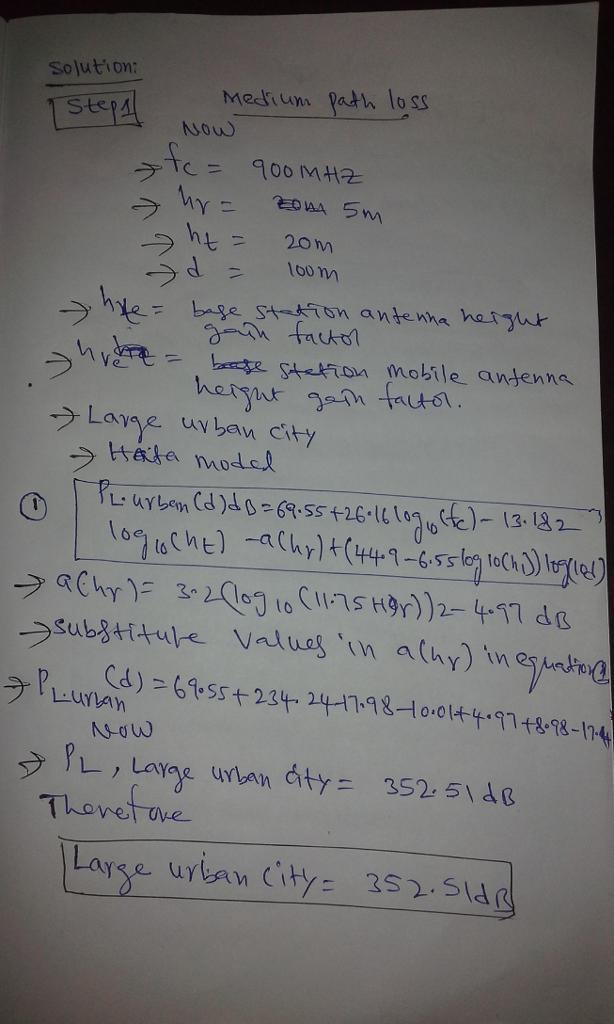 Solution:
Step1
Medium path loss
NOW
→ fc = 900 MHZ
→ hr = 5m
→ ht = 20m
→ d = 100m
→ hte = base station antenna height
gain factor
→ hre = station mobile antenna
height gain factor.
→ Large urban city
→ Hata model
① PL.urban (d)dB = 69.55+26.16log10(fc) - 13.182
log10(ht) -a(hr)+(44.9-6.55log10(ht))log(d)
→ a(hr) = 3.2(log10(11.75hr))2-4.97 dB
→ substitute values in a(hr) in equation 1
→ PL.urban (d) = 69.55+234.24-17.98-10.01+4.97+8.98-17.
NOW
→ PL, Large urban city = 352.51dB
Therefore
Large urban city = 352.51dB